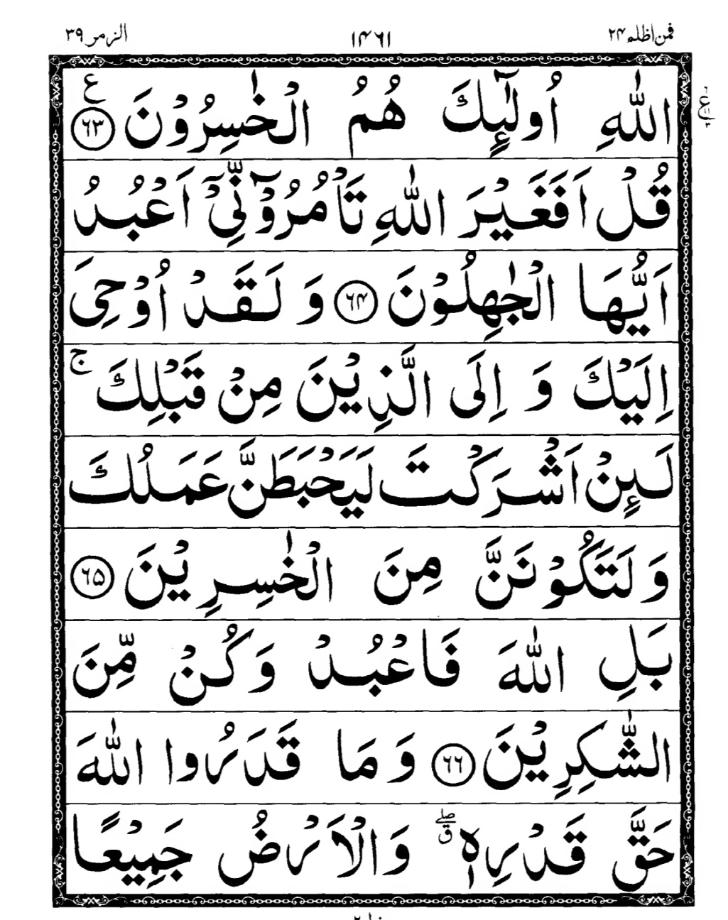 فمن اظلم ۲۴ ۱۴۶۱ الزمر ۳۹
اللّٰهِ اُولٰٓئِكَ هُمُ الْخٰسِرُوْنَ ۶۳ ع
قُلْ اَفَغَيْرَ اللّٰهِ تَاْمُرُوْٓنِّيْٓ اَعْبُدُ
اَيُّهَا الْجٰهِلُوْنَ ۶۴ وَ لَقَدْ اُوْحِيَ
اِلَيْكَ وَ اِلَى الَّذِيْنَ مِنْ قَبْلِكَ ۚ
لَئِنْ اَشْرَكْتَ لَيَحْبَطَنَّ عَمَلُكَ
وَ لَتَكُوْنَنَّ مِنَ الْخٰسِرِيْنَ ۶۵
بَلِ اللّٰهَ فَاعْبُدْ وَ كُنْ مِّنَ
الشّٰكِرِيْنَ ۶۶ وَ مَا قَدَرُوا اللّٰهَ
حَقَّ قَدْرِهٖ ۖق وَالْاَرْضُ جَمِيْعًا